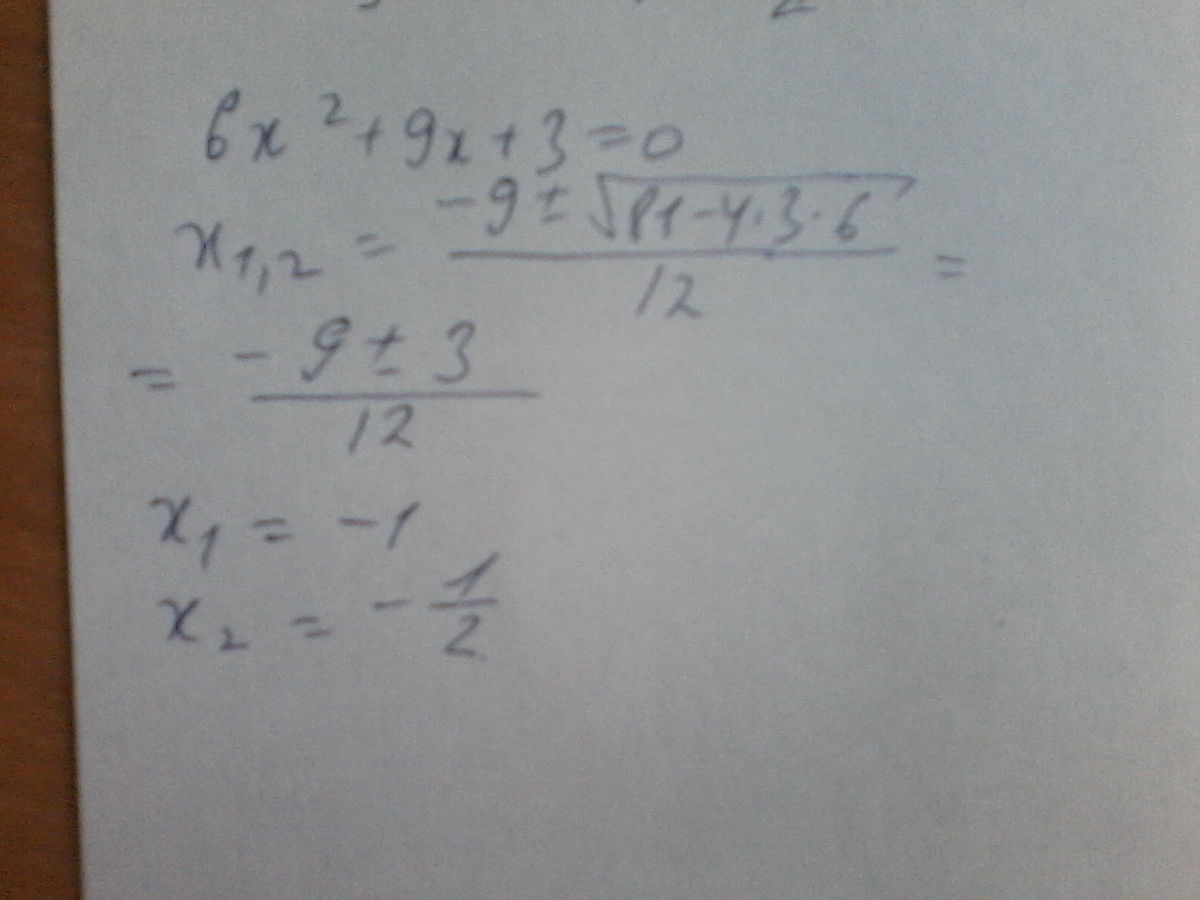 6x² + 9x + 3 = 0
x₁,₂ = (-9 ± √(81 - 4·3·6))/12 =
= (-9 ± 3)/12
x₁ = -1
x₂ = -1/2